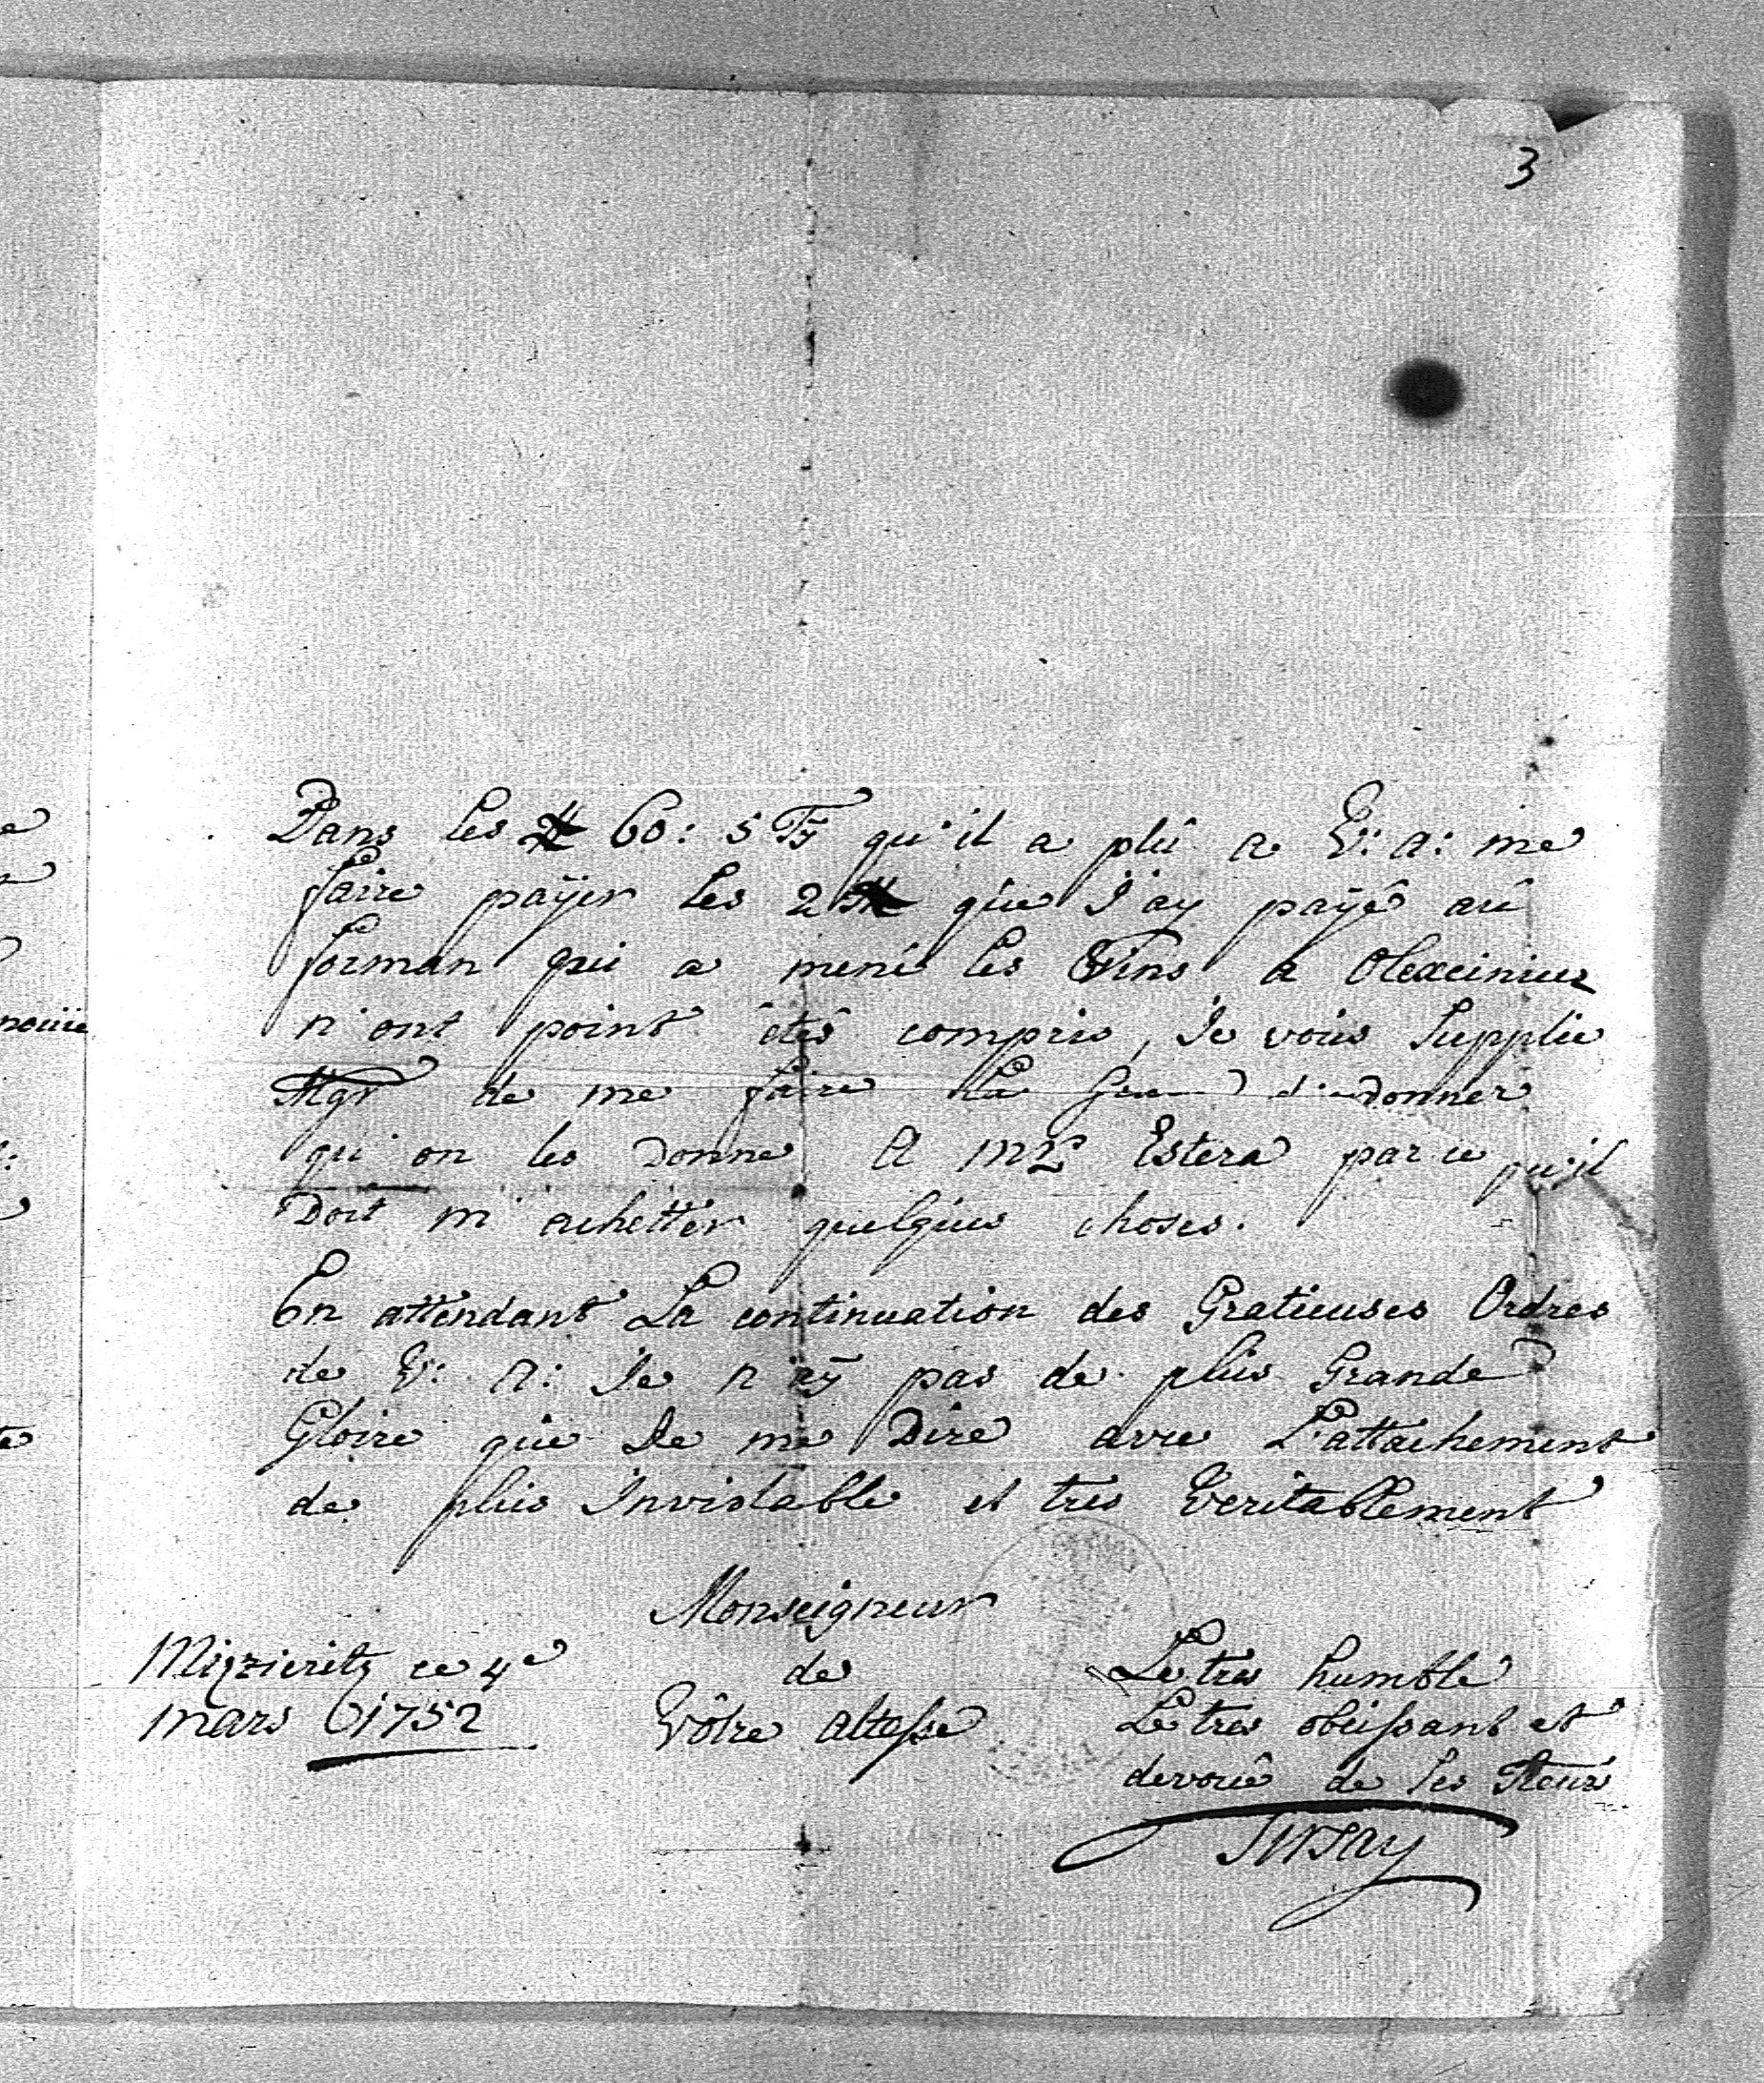 3
Dans les # 60: 5 Tÿ qu'il a plû a V: A: me
faire paÿer les 2 # que J'ay paÿê aû
forman qui a mené les Vins a Olexciniec
n'ont point êtês compris, Je vous supplie
Mgr de me faire la d donner
qu'on les Donne A Mr Estera par ce qu'il
Doit m'achetter quelques choses.
En attendant La continuation des Gratieuses Ordres
de V: A: Je n'aÿ pas de plus Grande
Gloire que De me Dire avec L'attachement
de plus Inviolable et tres Veritablement
Monseigneur
de
Vôtre altesse
Mizzieritz ce 4e
mars 1752
Le tres humble
Le tres obeissant et
devouê de ses